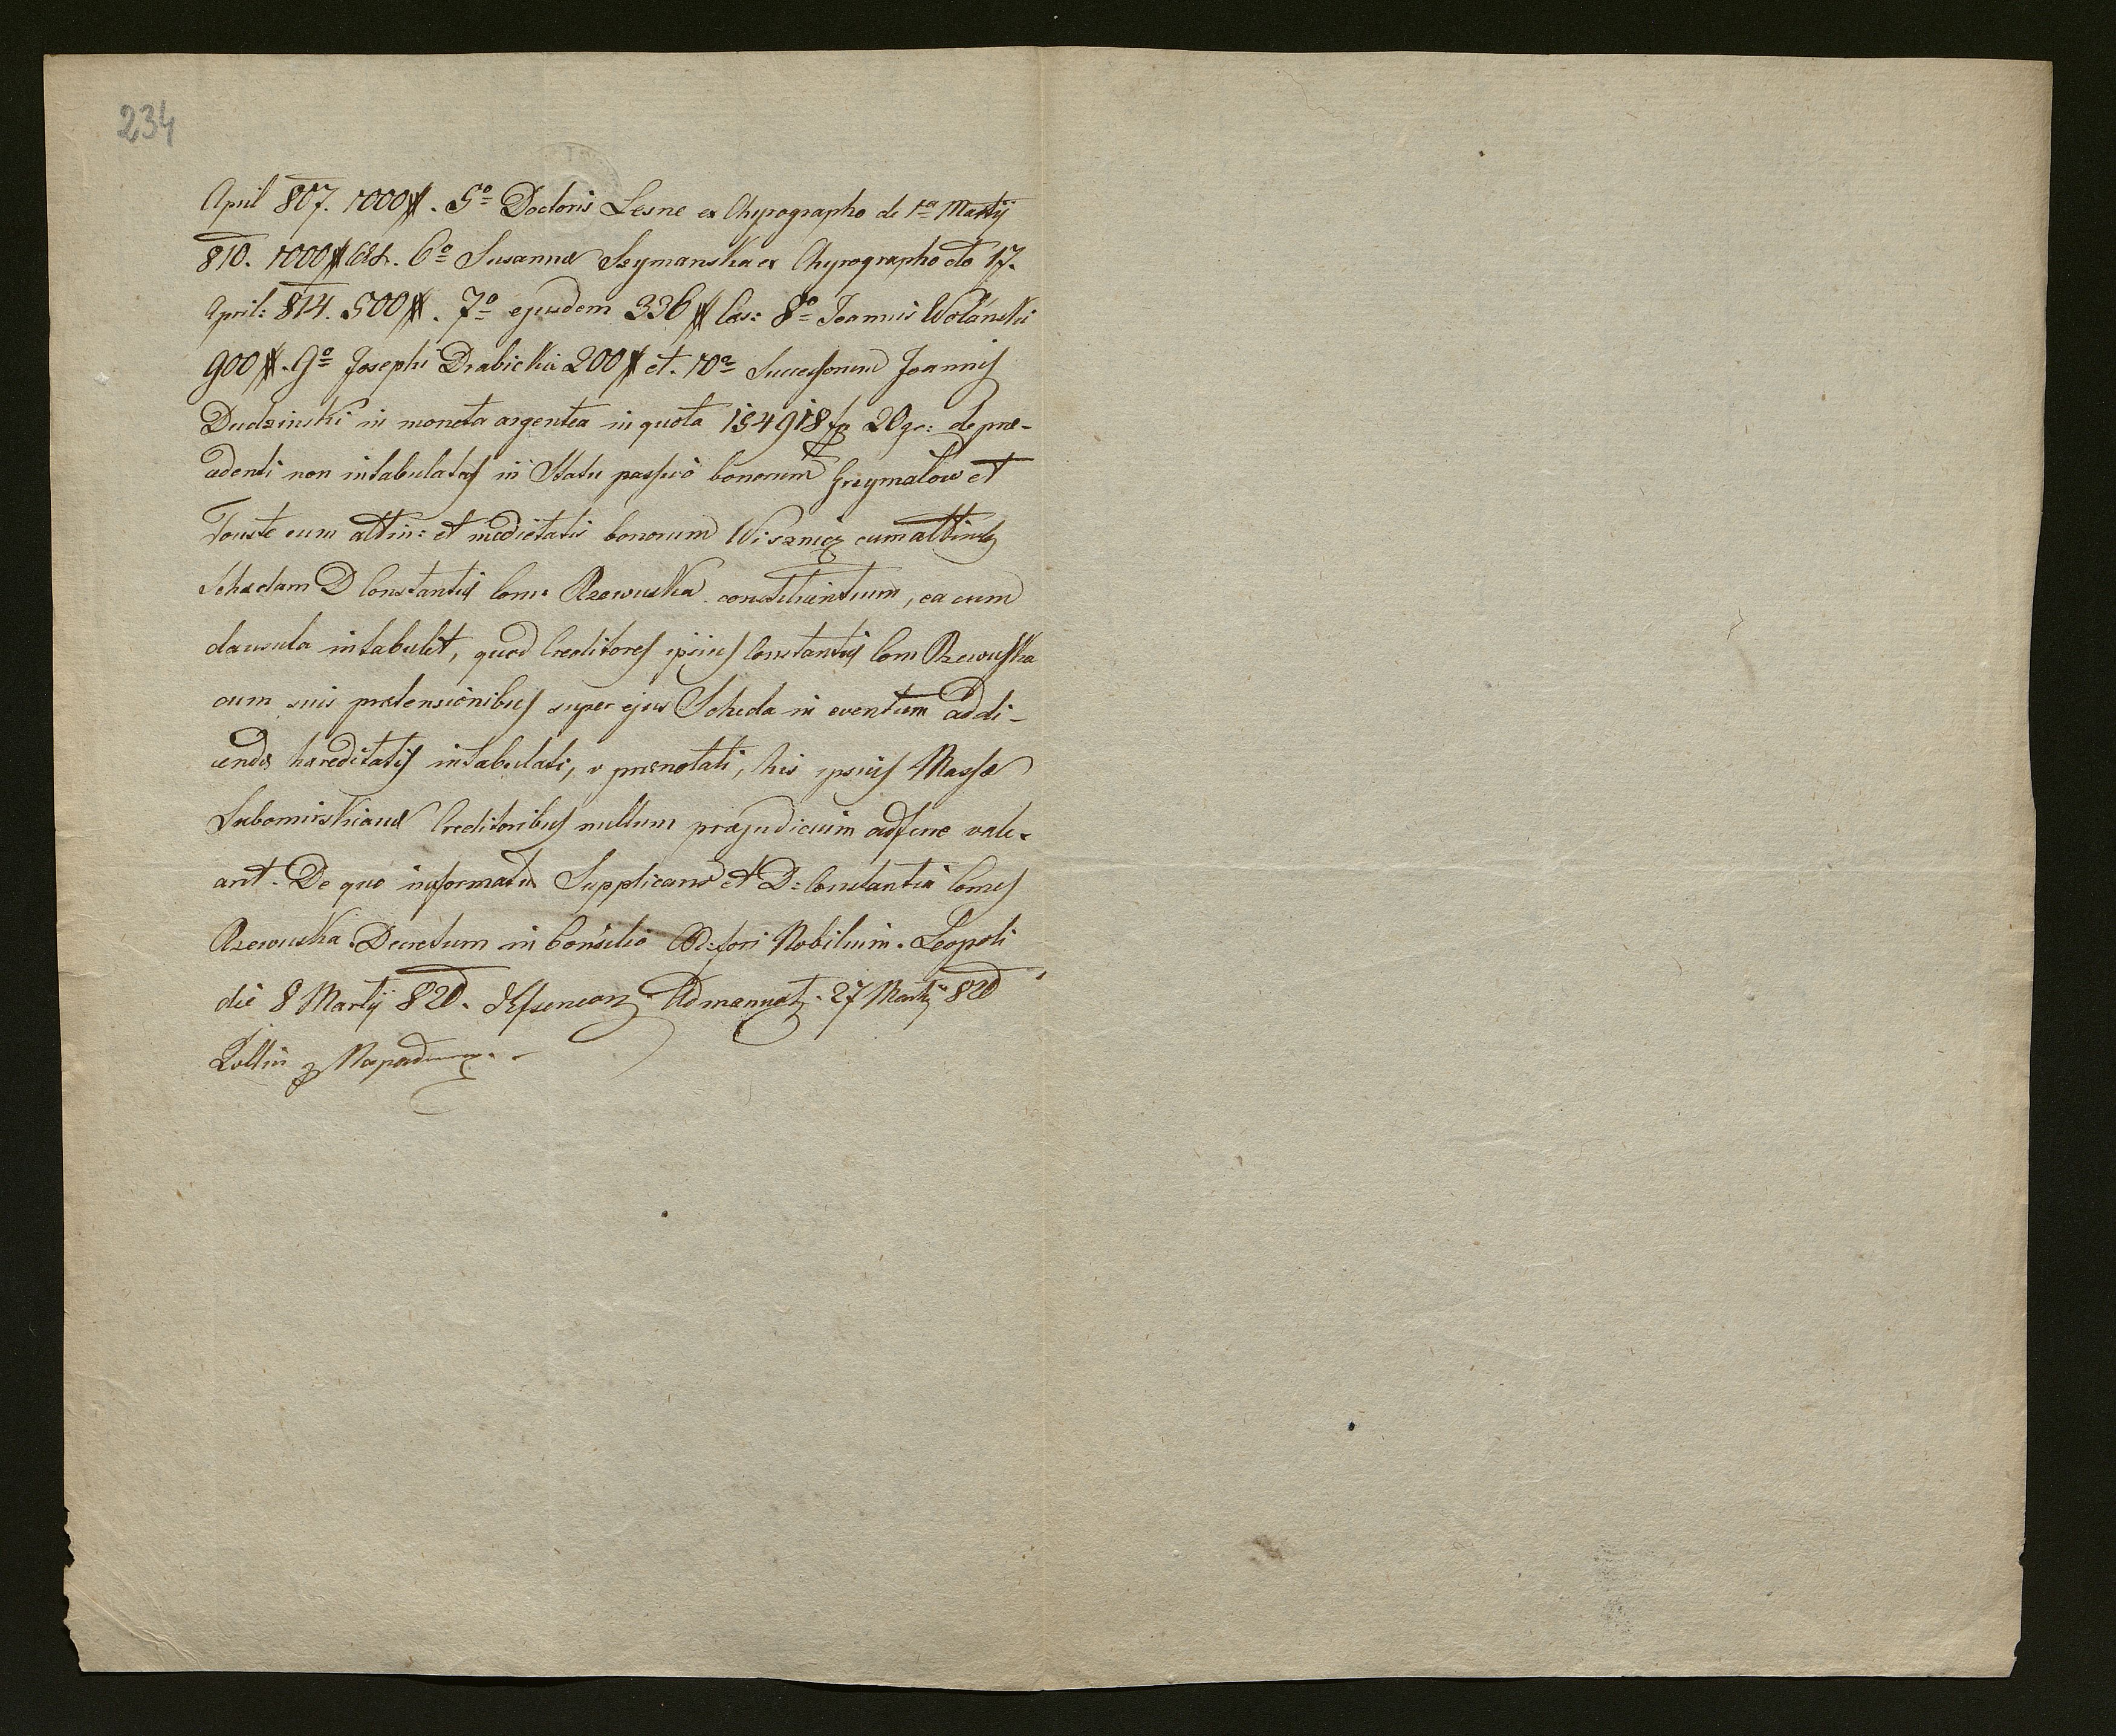 234
April 807. 1000 #. 5º Doctoris Lesne ex Chyrographo de 1ª Martij
810. 1000 # 6º Susannæ Szymanska ex Chyrographo dto 17.
April: 814. 500 #. 7º ejusdem 336 # Cæs: 8º Joannis Wolánski
900 #. 9º Josephi Drabicki 200 # et. 10º Successorum Joannis
Dudzinski in moneta argentea in quota 154918 fp 20 gr: de præ-
cedenti non intabulatas in Statu passivo bonorum Grzymalow et
Touste cum attin: et medietatis bonorum Wisznicz cum attin
Schedam D Constantiæ Com: Rzewuska constituentium, ea cum
clausula intabulet, quod Creditores ipsius Constantiæ Com Rzewuska
cum suis prætensionibus super ejus Scheda in eventum addi-
cendæ hæreditatis intabulati, v prænotati, his ipsius Massæ
Lubomirskianæ Creditoribus nullum præjudicium adferre vale-
ant. De quo informatur Supplicans et D: Constantia Comes
Rzewuska. Decretum in Consilio Cæs: fori Nobilium. Leopoli
die 8 Martij 820. Ad 27 Martij 820